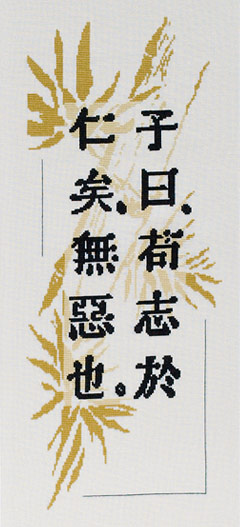 子曰.苟志於
仁矣.無惡也。